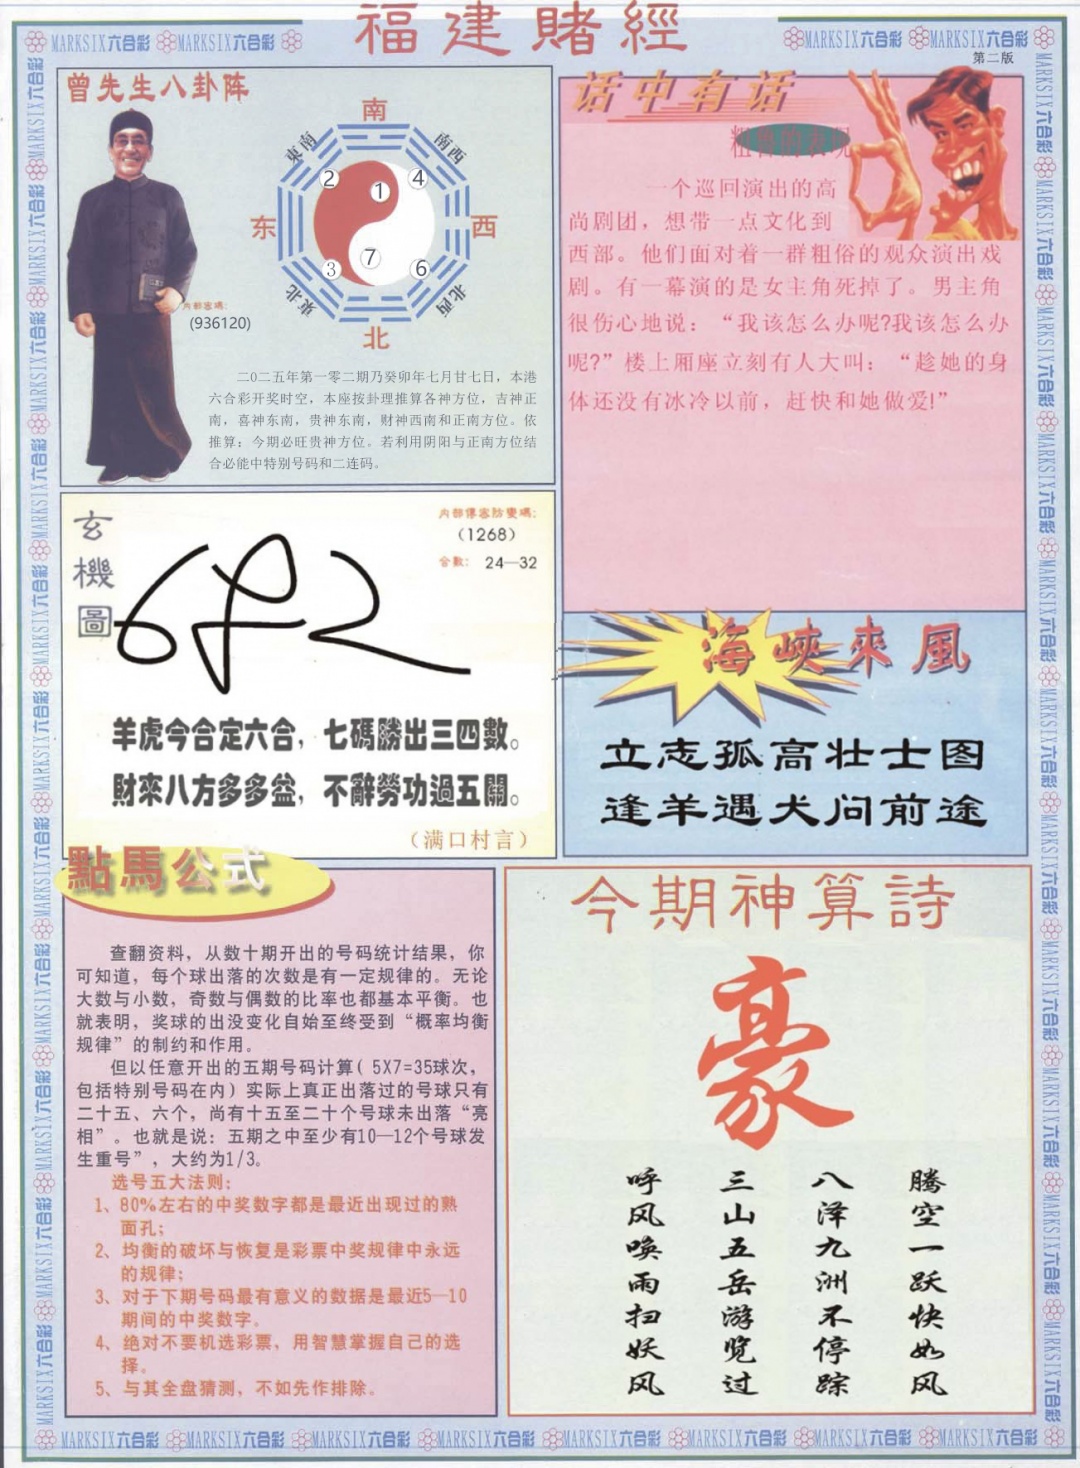 福建賭經
MARKSIX六合彩 MARKSIX六合彩
MARKSIX六合彩 MARKSIX六合彩
第二版
曾先生八卦阵
南
東南
南西
2
1
4
东
西
3
7
6
東北
北西
北
内部密碼:
(936120)
二0二五年第一零二期乃癸卯年七月廿七日，本港
六合彩开奖时空，本座按卦理推算各神方位，吉神正
南，喜神东南，贵神东南，财神西南和正南方位。依
推算：今期必旺贵神方位。若利用阴阳与正南方位结
合必能中特别号码和二连码。
话中有话
粗鲁的表现
一个巡回演出的高
尚剧团，想带一点文化到
西部。他们面对着一群粗俗的观众演出戏
剧。有一幕演的是女主角死掉了。男主角
很伤心地说：“我该怎么办呢?我该怎么办
呢?”楼上厢座立刻有人大叫：“趁她的身
体还没有冰冷以前，赶快和她做爱!”
玄
機
圖
内部傳密防變碼:
(1268)
合數: 24—32
羊虎今合定六合，七碼勝出三四數。
財來八方多多益，不辭勞功過五關。
(满口村言)
海峽來風
立志孤高壮士图
逢羊遇犬问前途
點馬公式
查翻资料，从数十期开出的号码统计结果，你
可知道，每个球出落的次数是有一定规律的。无论
大数与小数，奇数与偶数的比率也都基本平衡。也
就表明，奖球的出没变化自始至终受到“概率均衡
规律”的制约和作用。
但以任意开出的五期号码计算( 5X7=35球次，
包括特别号码在内) 实际上真正出落过的号球只有
二十五、六个，尚有十五至二十个号球未出落“亮
相”。也就是说：五期之中至少有10—12个号球发
生重号”，大约为1/3。
选号五大法则：
1、80%左右的中奖数字都是最近出现过的熟
面孔；
2、均衡的破坏与恢复是彩票中奖规律中永远
的规律；
3、对于下期号码最有意义的数据是最近5—10
期间的中奖数字。
4、绝对不要机选彩票，用智慧掌握自己的选
择。
5、与其全盘猜测，不如先作排除。
今期神算詩
豪
腾空一跃快如风
八泽九洲不停踪
三山五岳游览过
呼风唤雨扫妖风
MARKSIX六合彩 MARKSIX六合彩 MARKSIX六合彩 MARKSIX六合彩 MARKSIX六合彩 MARKSIX六合彩 MARKSIX六合彩 MARKSIX六合彩